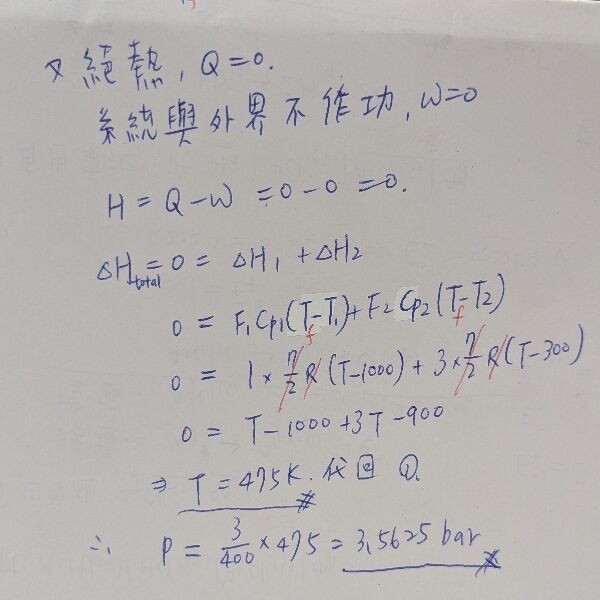 又絕熱, Q=0.
系統與外界不作功, W=0
H = Q-W = 0-0 = 0.
ΔH_total = 0 = ΔH₁ + ΔH₂
0 = F₁Cp₁(T_f-T₁) + F₂Cp₂(T_f-T₂)
0 = 1 × 7/2 R (T-1000) + 3 × 7/2 R (T-300)
0 = T-1000+3T-900
⇒ T = 475K. 代回 ①
∴ P = 3/400 × 475 = 3.5625 bar